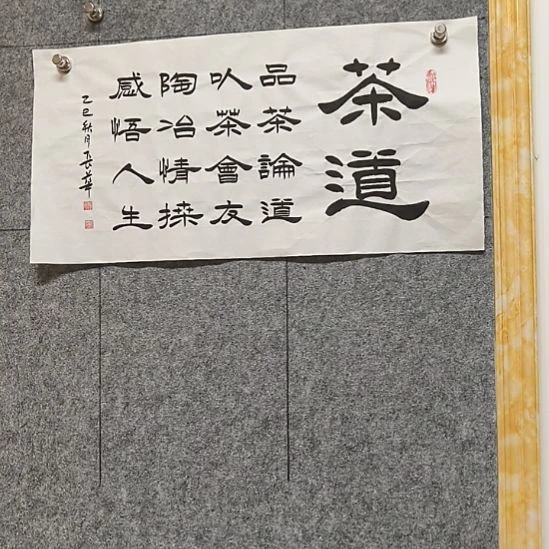 茶道
品茶論道
以茶會友
陶冶情操
感悟人生
乙巳秋月長華